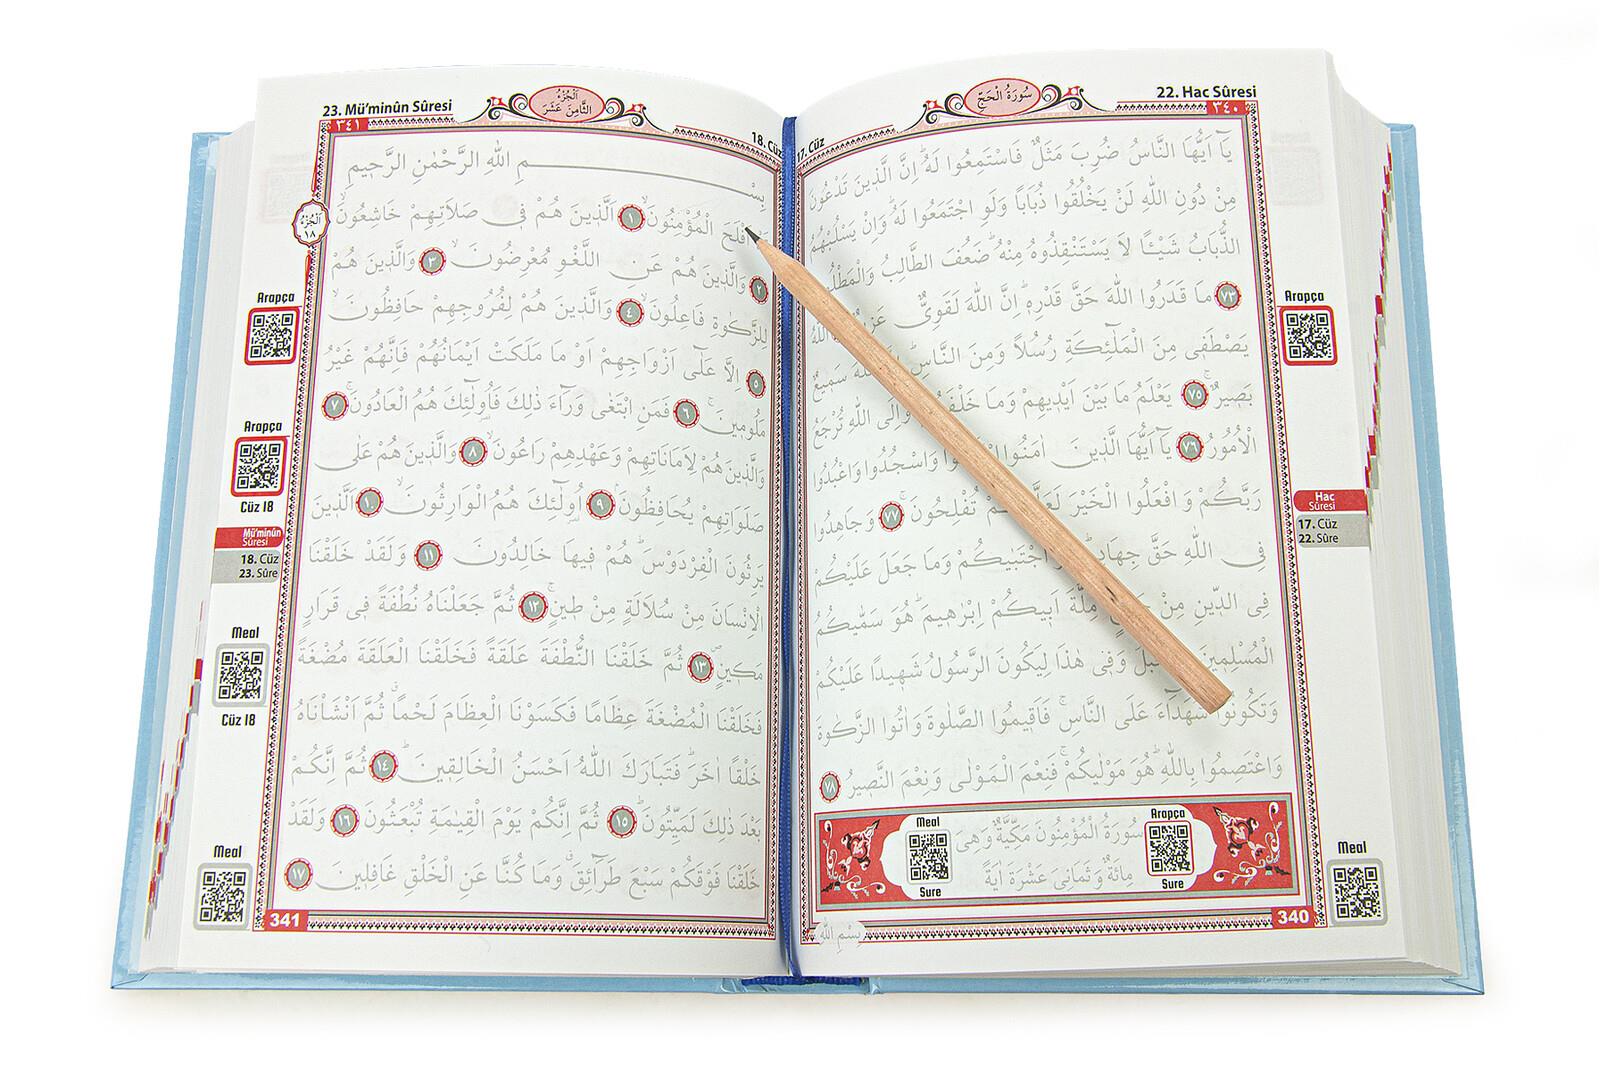 22. Hac Sûresi
سُورَةُ الْحَجّ
٣٤٠
17. Cüz
يَٓا اَيُّهَا النَّاسُ ضُرِبَ مَثَلٌ فَاسْتَمِعُوا لَهُۜ اِنَّ الَّذ۪ينَ تَدْعُونَ
مِنْ دُونِ اللّٰهِ لَنْ يَخْلُقُوا ذُبَابًا وَلَوِ اجْتَمَعُوا لَهُۜ وَاِنْ يَسْلُبْهُمُ
الذُّبَابُ شَيْـًٔا لَا يَسْتَنْقِذُوهُ مِنْهُۜ ضَعُفَ الطَّالِبُ وَالْمَطْلُ
٧٣ مَا قَدَرُوا اللّٰهَ حَقَّ قَدْرِه۪ۜ اِنَّ اللّٰهَ لَقَوِيٌّ اَللّٰهُ
يَصْطَف۪ي مِنَ الْمَلٰٓئِكَةِ رُسُلًا وَمِنَ النَّاسِۜ اللّٰهَ سَم۪يعٌ
بَص۪يرٌۚ ٧٥ يَعْلَمُ مَا بَيْنَ اَيْد۪يهِمْ وَمَا خَلْفَ وَاِلَى اللّٰهِ تُرْجَعُ
الْاُمُورُ ٧٦ يَٓا اَيُّهَا الَّذ۪ينَ اٰمَنُوا وَاسْجُدُوا وَاعْبُدُوا
رَبَّكُمْ وَافْعَلُوا الْخَيْرَ لَعَلَّ تُفْلِحُونَۚ ٧٧ وَجَاهِدُوا
فِي اللّٰهِ حَقَّ جِهَادِ اجْتَبٰيكُمْ وَمَا جَعَلَ عَلَيْكُمْ
فِي الدّ۪ينِ مِنْ مِلَّةَ اَب۪يكُمْ اِبْرٰه۪يمَۜ هُوَ سَمّٰيكُمُ
الْمُسْلِم۪ينَ قَبْلُ وَف۪ي هٰذَا لِيَكُونَ الرَّسُولُ شَه۪يدًا عَلَيْكُمْ
وَتَكُونُوا شُهَدَٓاءَ عَلَى النَّاسِۚ فَاَق۪يمُوا الصَّلٰوةَ وَاٰتُوا الزَّكٰوةَ
وَاعْتَصِمُوا بِاللّٰهِۜ هُوَ مَوْلٰيكُمْۚ فَنِعْمَ الْمَوْلٰى وَنِعْمَ النَّص۪يرُ ٧٨
Arapça
Sure
سُورَةُ الْمُؤْمِنُونَ مَكِّيَّةٌ وَهِيَ
مِائَةٌ وَثَمَانِيَ عَشْرَةَ اٰيَةً
Meal
Sure
340
بِسْمِ اللّٰهِ
Arapça
Hac
Sûresi
17. Cüz
22. Sûre
Meal
23. Mü'minûn Sûresi
اَلْجُزْءُ
الثَّامِنَ عَشَرَ
٣٤١
18. Cüz
بِسْمِ اللّٰهِ الرَّحْمٰنِ الرَّح۪يمِ
فْلَحَ الْمُؤْمِنُونَۙ ١ اَلَّذ۪ينَ هُمْ ف۪ي صَلَاتِهِمْ خَاشِعُونَۙ
٢ وَالَّذ۪ينَ هُمْ عَنِ اللَّغْوِ مُعْرِضُونَۙ ٣ وَالَّذ۪ينَ هُمْ
لِلزَّكٰوةِ فَاعِلُونَۙ ٤ وَالَّذ۪ينَ هُمْ لِفُرُوجِهِمْ حَافِظُونَۙ
٥ اِلَّا عَلٰٓى اَزْوَاجِهِمْ اَوْ مَا مَلَكَتْ اَيْمَانُهُمْ فَاِنَّهُمْ غَيْرُ
مَلُوم۪ينَۚ ٦ فَمَنِ ابْتَغٰى وَرَٓاءَ ذٰلِكَ فَاُو۬لٰٓئِكَ هُمُ الْعَادُونَۚ ٧
وَالَّذ۪ينَ هُمْ لِاَمَانَاتِهِمْ وَعَهْدِهِمْ رَاعُونَۙ ٨ وَالَّذ۪ينَ هُمْ عَلٰى
صَلَوَاتِهِمْ يُحَافِظُونَۢ ٩ اُو۬لٰٓئِكَ هُمُ الْوَارِثُونَۙ ١٠ اَلَّذ۪ينَ
يَرِثُونَ الْفِرْدَوْسَۜ هُمْ ف۪يهَا خَالِدُونَ ١١ وَلَقَدْ خَلَقْنَا
الْاِنْسَانَ مِنْ سُلَالَةٍ مِنْ ط۪ينٍۚ ١٢ ثُمَّ جَعَلْنَاهُ نُطْفَةً ف۪ي قَرَارٍ
مَك۪ينٍۖ ١٣ ثُمَّ خَلَقْنَا النُّطْفَةَ عَلَقَةً فَخَلَقْنَا الْعَلَقَةَ مُضْغَةً
فَخَلَقْنَا الْمُضْغَةَ عِظَامًا فَكَسَوْنَا الْعِظَامَ لَحْمًاۗ ثُمَّ اَنْشَأْنَاهُ
خَلْقًا اٰخَرَۜ فَتَبَارَكَ اللّٰهُ اَحْسَنُ الْخَالِق۪ينَۜ ١٤ ثُمَّ اِنَّكُمْ
بَعْدَ ذٰلِكَ لَمَيِّتُونَۜ ١٥ ثُمَّ اِنَّكُمْ يَوْمَ الْقِيٰمَةِ تُبْعَثُونَ ١٦ وَلَقَدْ
خَلَقْنَا فَوْقَكُمْ سَبْعَ طَرَٓائِقَۗ وَمَا كُنَّا عَنِ الْخَلْقِ غَافِل۪ينَ ١٧
341
اَلْجُزْءُ
١٨
Arapça
Arapça
Cüz 18
Mü'minûn
Sûresi
18. Cüz
23. Sûre
Meal
Cüz 18
Meal